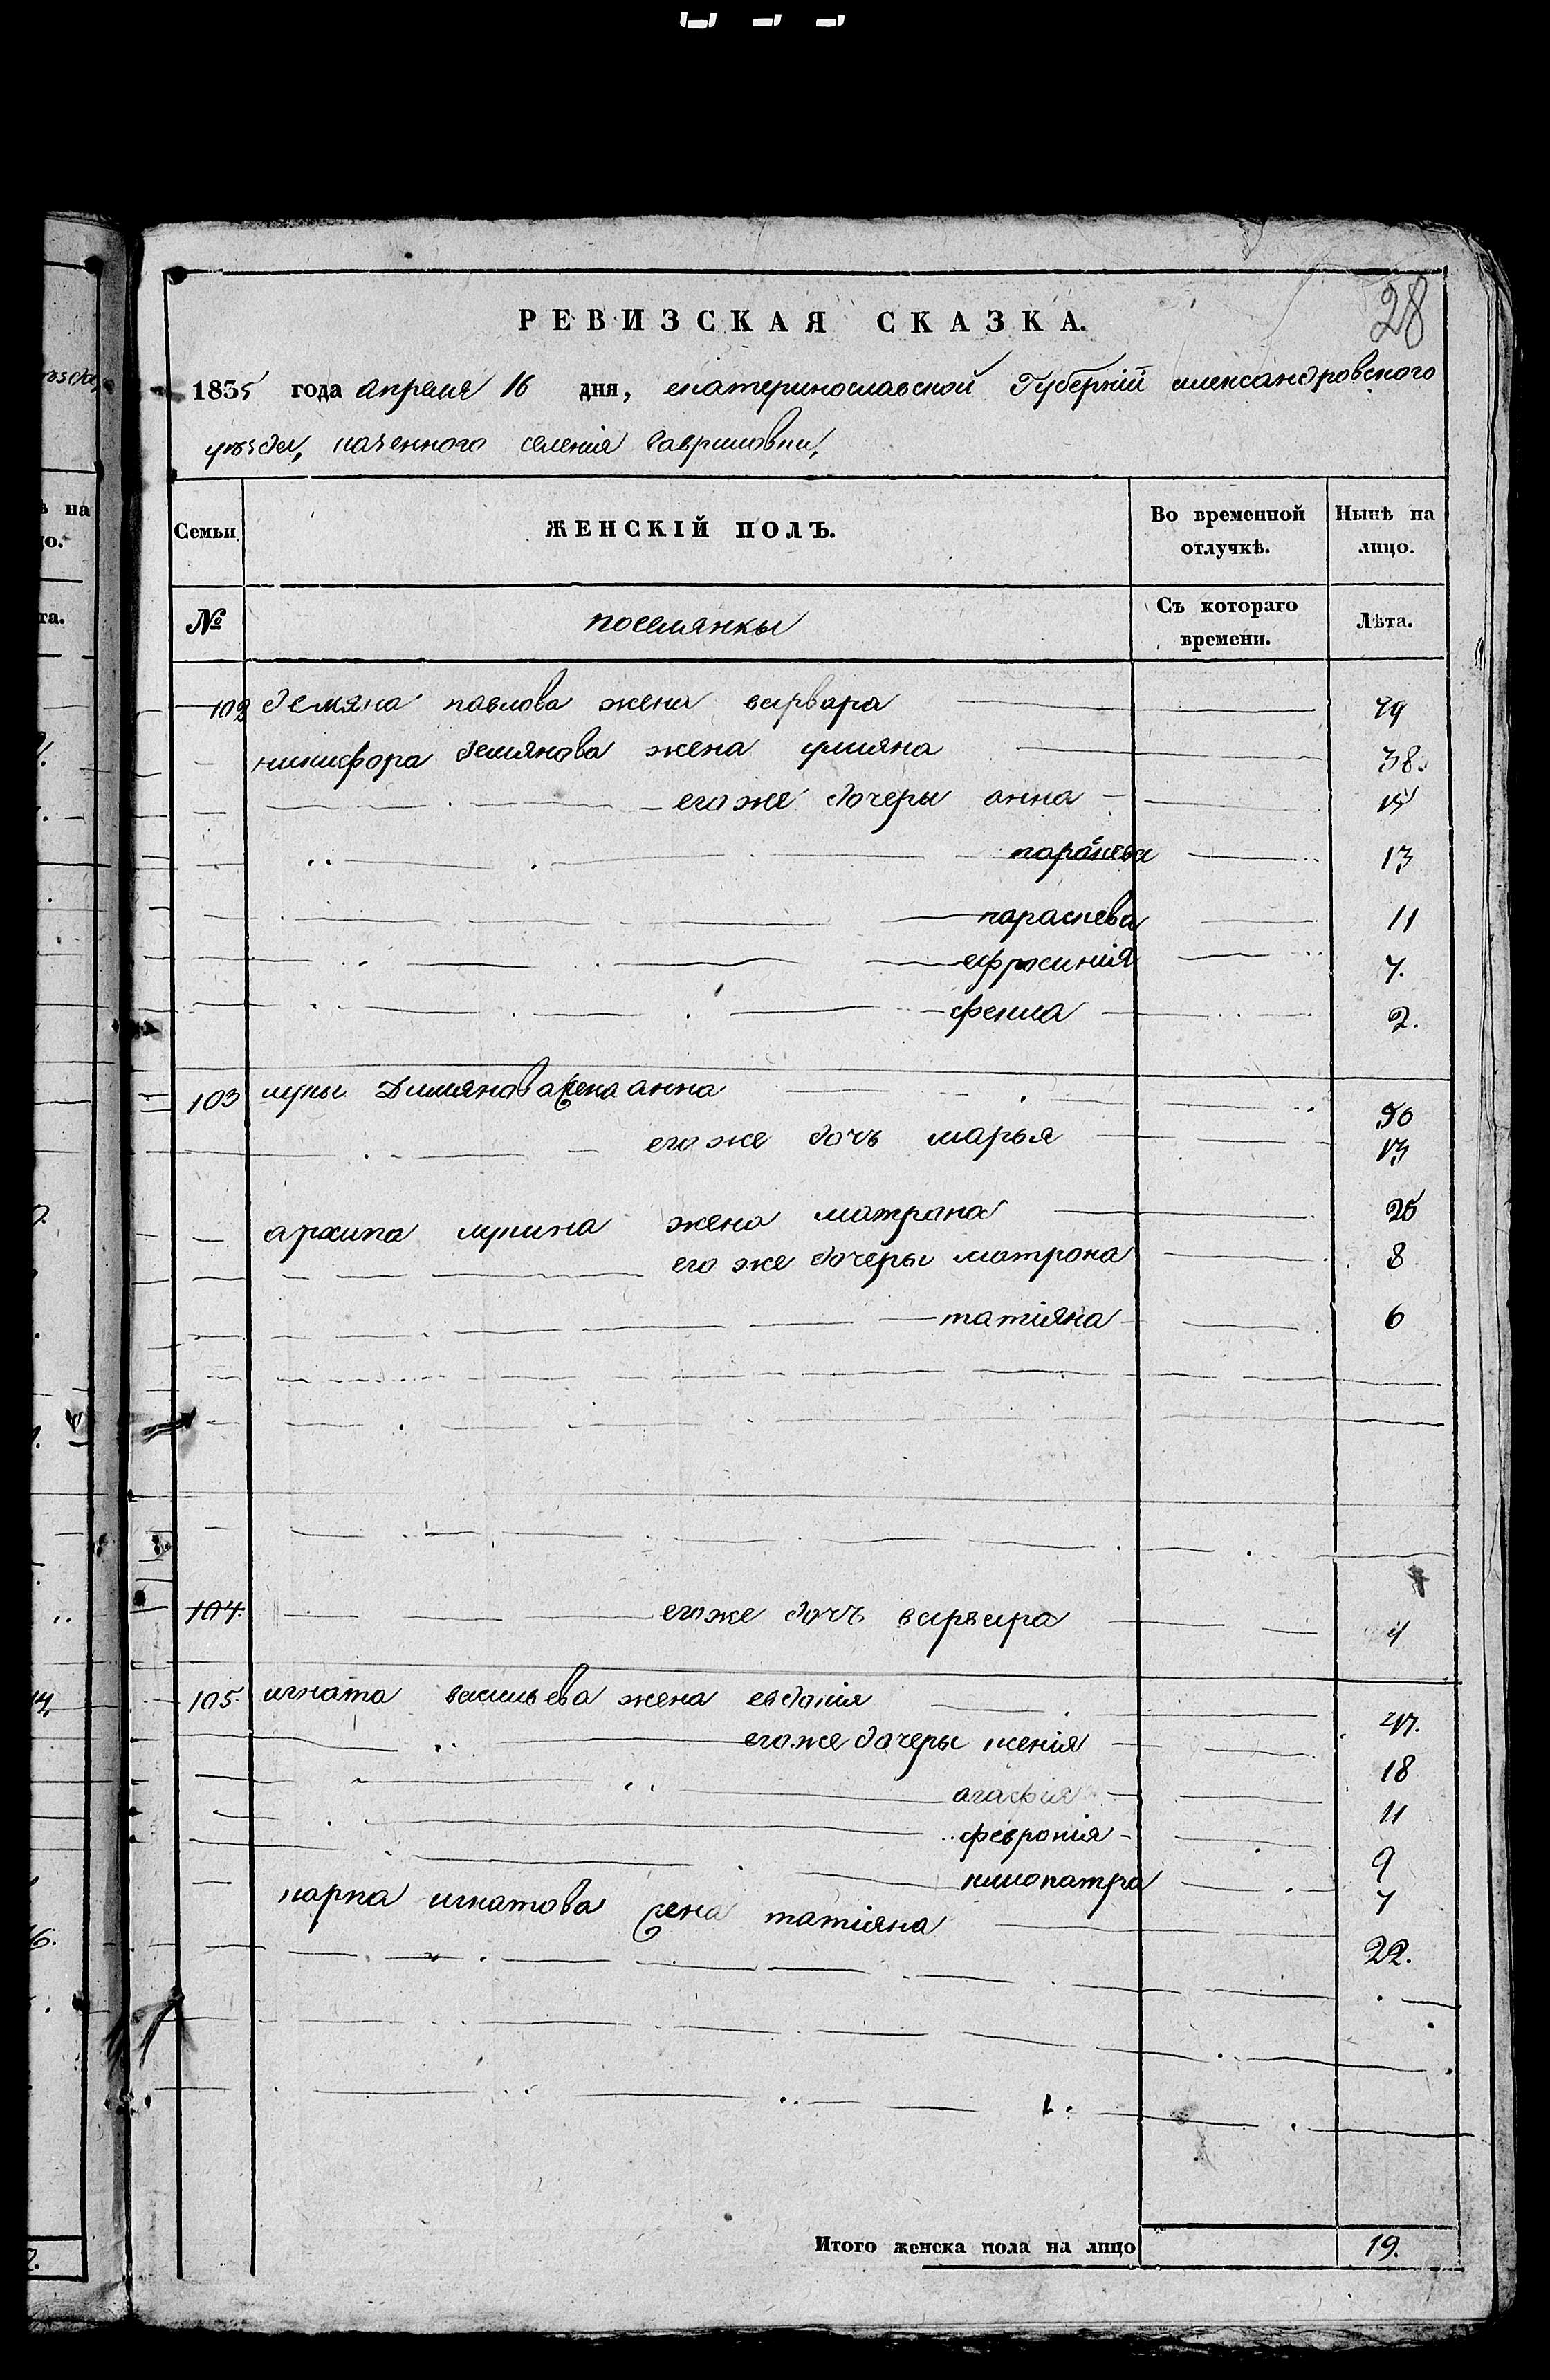 28
РЕВИЗСКАЯ СКАЗКА.
1835 года апреля 16 дня, екатеринославской Губерніи александровского
уѣзда, казенного селенія Гавриловки,
Семьи
ЖЕНСКІЙ ПОЛЪ.
Во временной отлучкѣ.
Нынѣ на лицо.
№
поселянки
Съ котораго времени.
Лѣта.
102 демяна павлова жена варвара 79
никифора демянова жена улияна 38.
его же дочеры анна
параскева 13
параскева 11
ефросинія 7.
фекла 2.
103 луки Димянова жена анна 50
его же дочъ марья 13
архипа лукина жена матрона 25
его же дочеры матрона 8
татіяна 6
104. его же дочъ варвара 4
105. игната васильева жена евдокія 47.
его же дочеры ксенія 18
агафія 11
февронія 9
клиопатра 7
карпа игнатова жена татіяна 22.
Итого женска пола на лицо 19.